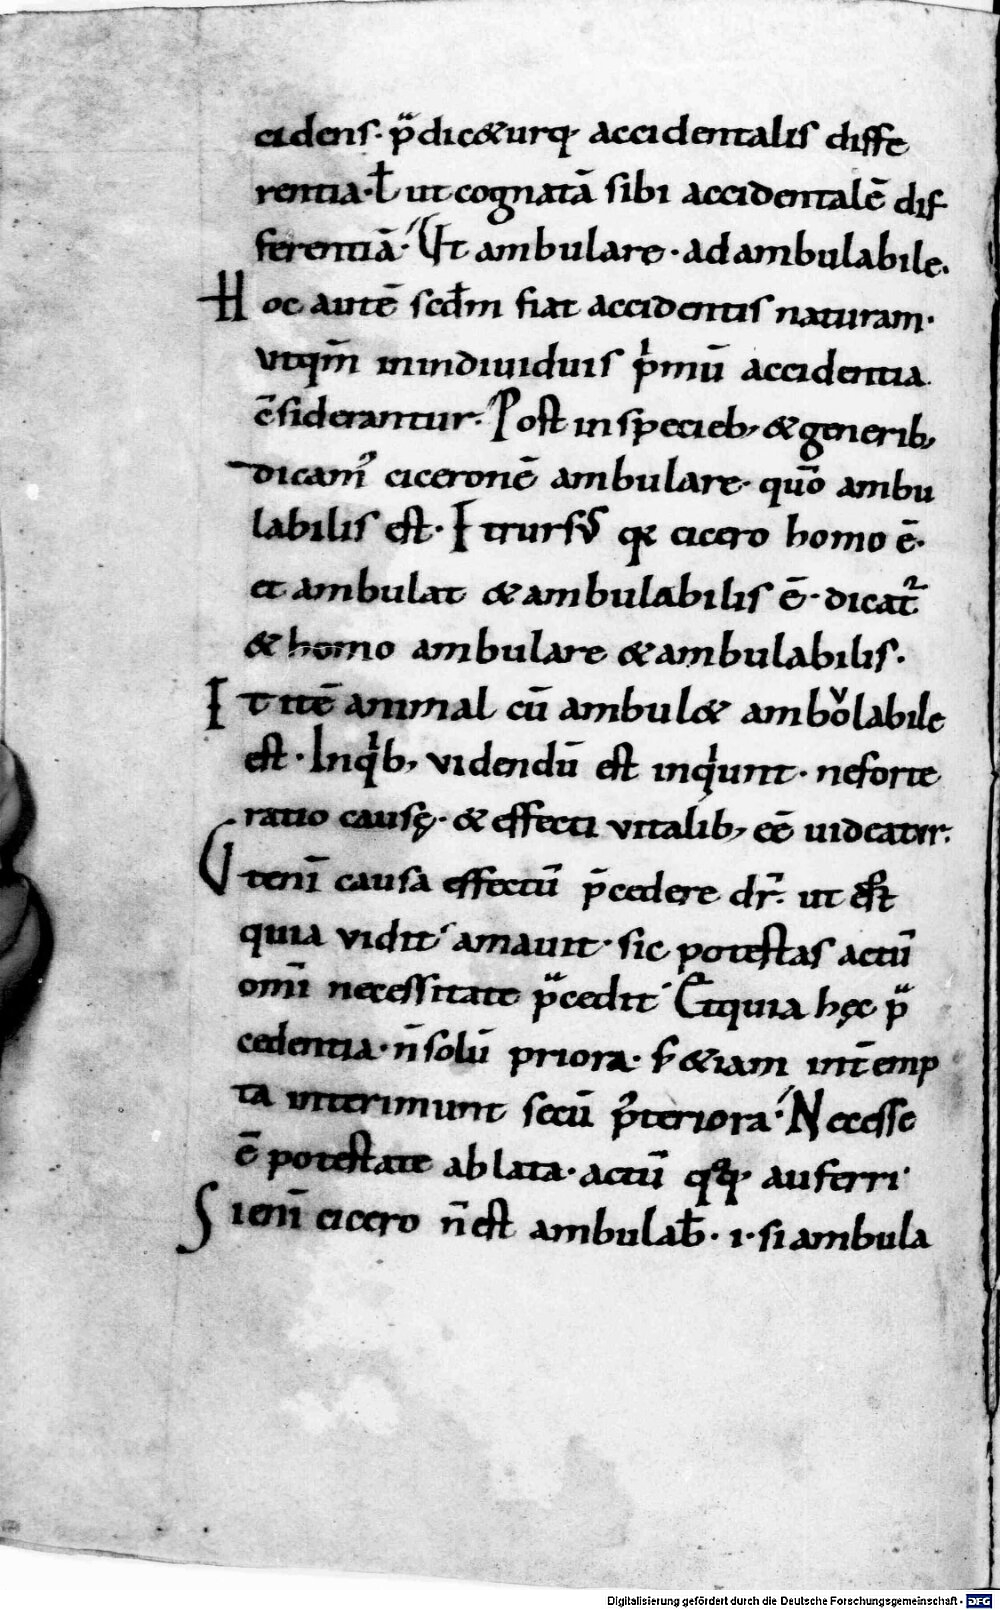 cidens. p̄dic&urq; accidentalis diffe
rentia. ł ut cognatā sibi accidentalē dif
ferentiā. Ut ambulare. ad ambulabile.
Hoc autē scđm fiat accidentis naturam.
utqm̄ inindiuiduis pͥmū accidentia
c̄siderantur. Post inspecieb; & generib;
dicam᾽ ciceronē ambulare. quō ambu
labilis est. Itrursū qꝛ cicero homo ē.
et ambulat & ambulabilis ē. dicat᷑
& homo ambulare & ambulabilis.
It itē animal cū ambul& ambᵛolabile
est. Inqͥb; videndū est inqͥunt. neforte
ratio causę. & effecti vitalib; eē uideatur.
Ut eni causa effectū p̄cedere dr̄. ut est
quia vidit amauit. sic potestas actū
omi necessitate p̄cedit Et quia hęc p̄
cedentia. n̄ solū priora. s; &iam int̄emp
ta interimunt secū p᾽teriora. Necesse
ē potestate ablata. actū qͦq; auferri
Si eni cicero n̄ est ambulab̄. i. si ambula
Digitalisierung gefördert durch die Deutsche Forschungsgemeinschaft - DFG